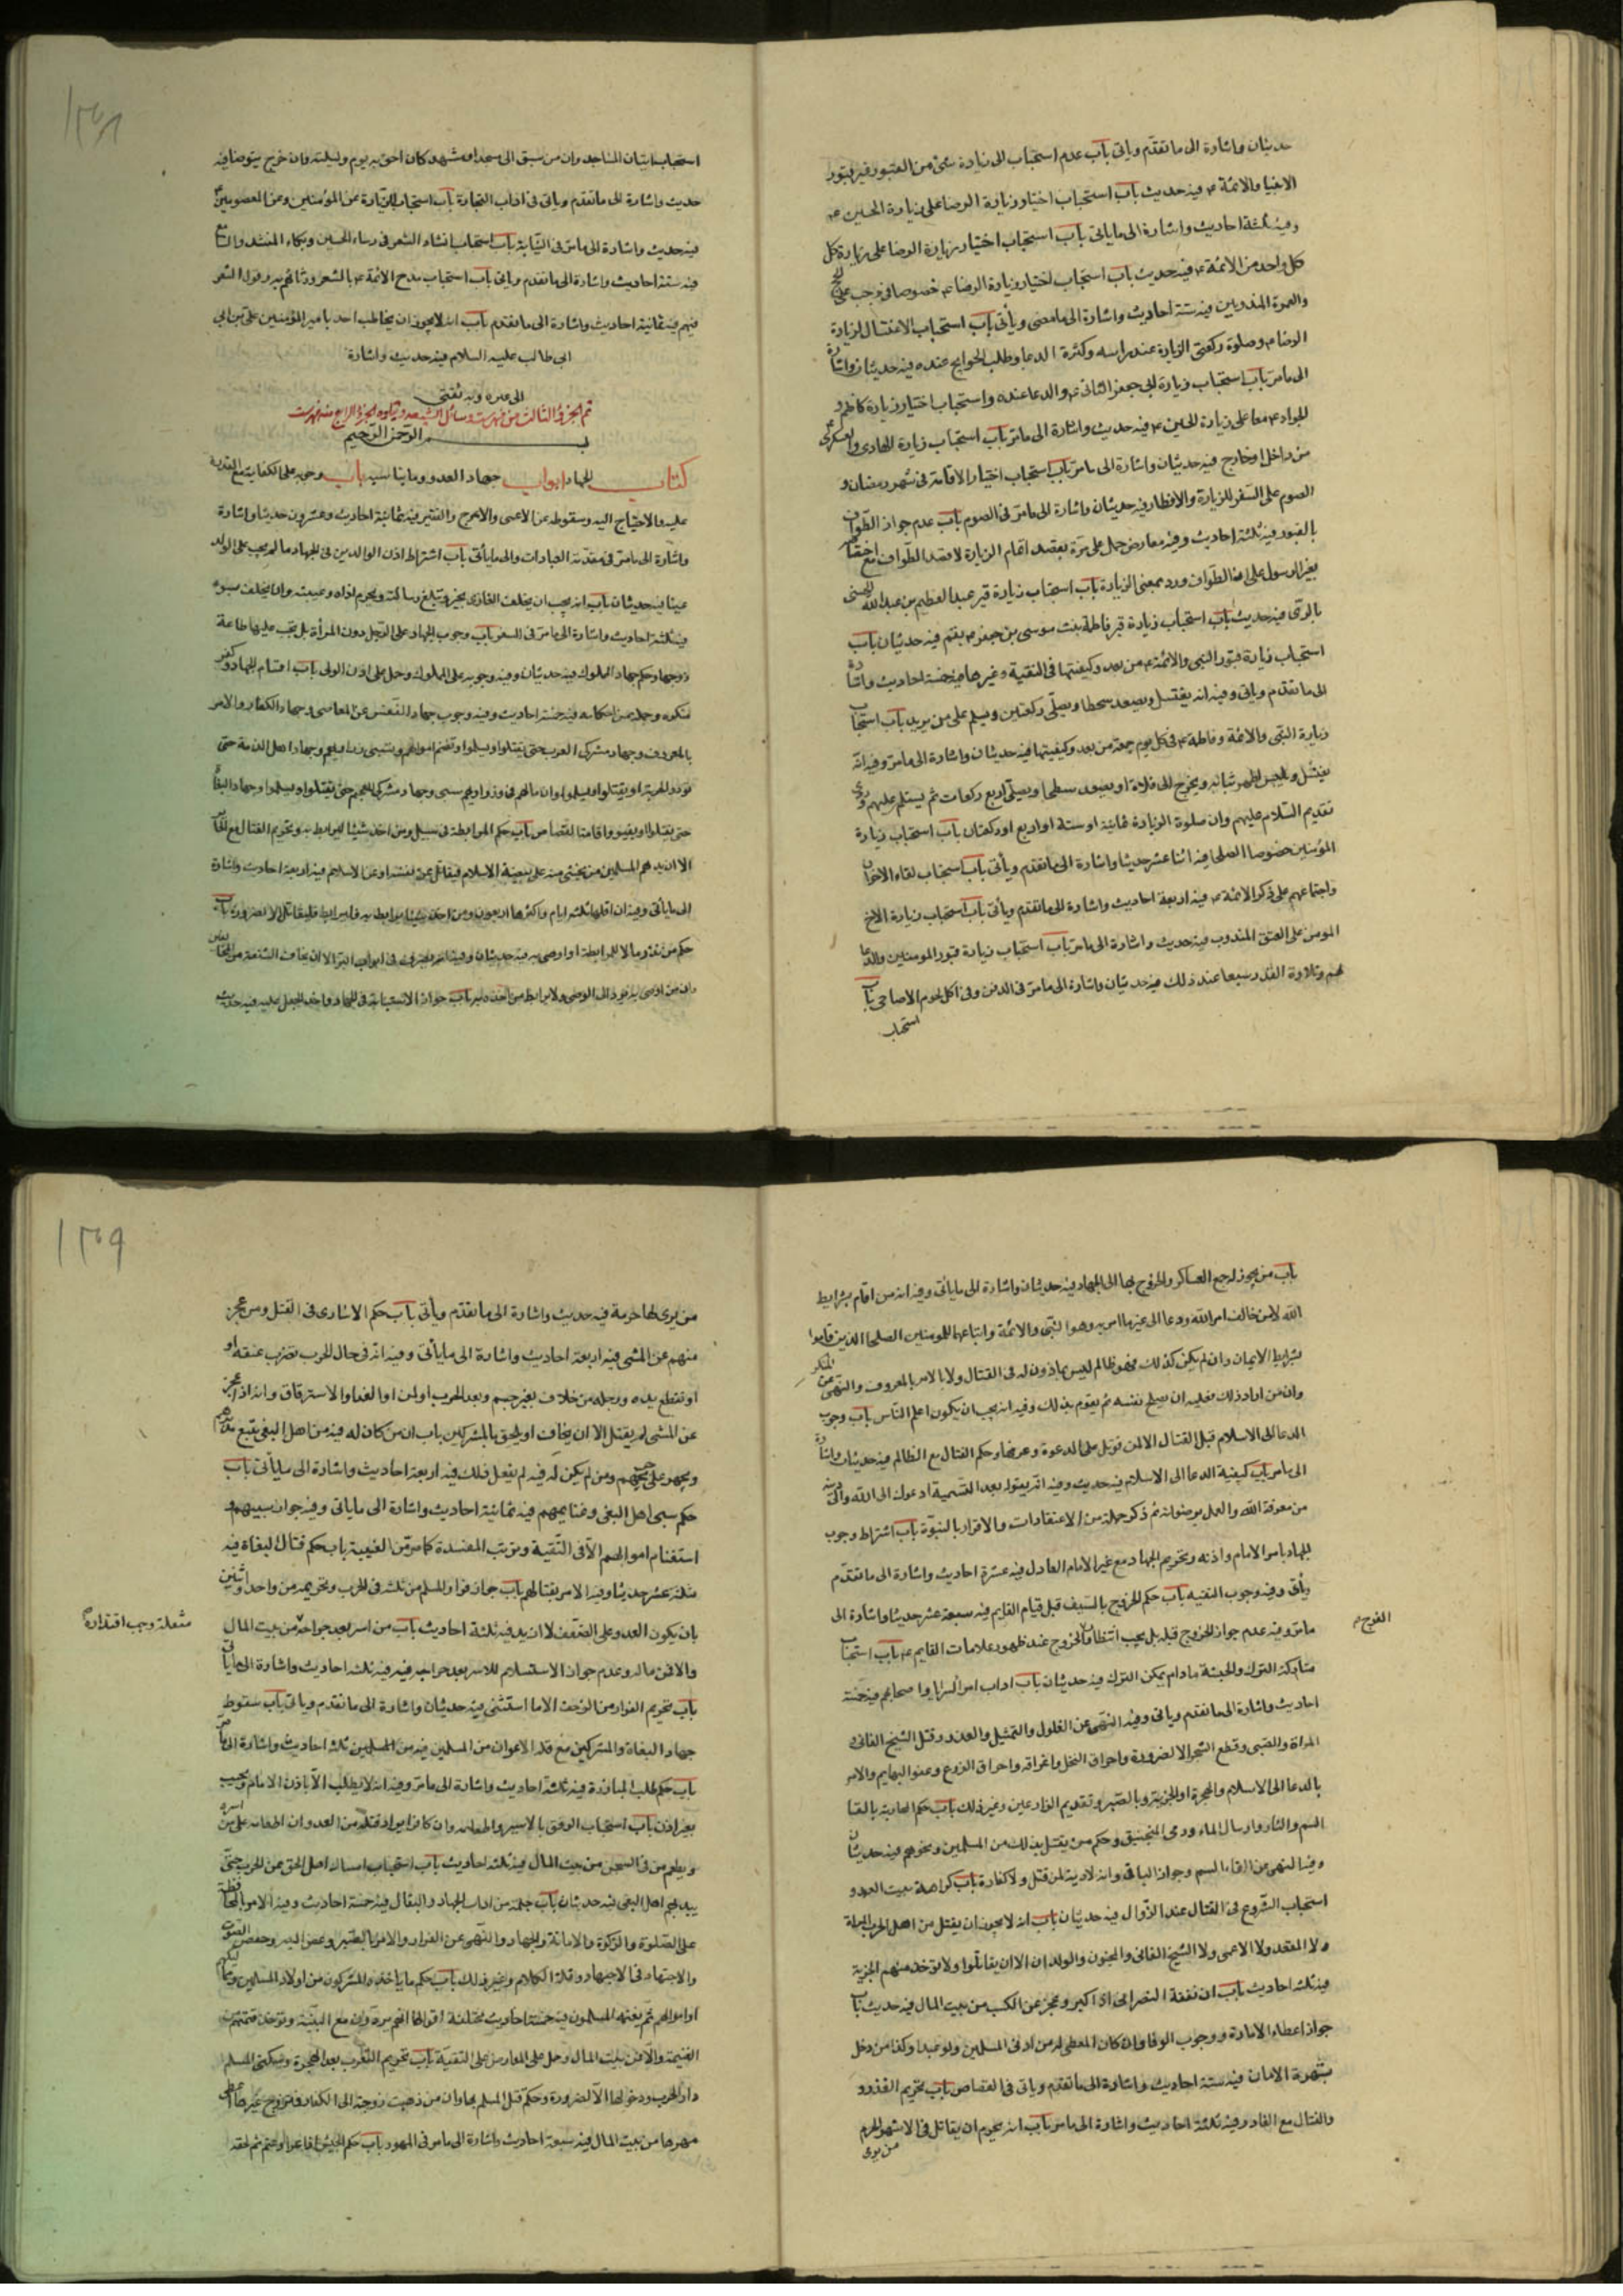 حديثان واشارة الى ما تقدم وياتى باب عدم استحباب الى زيارة شئ من القبور غير قبور
الانبيا والائمة ع فيه حديث باب استحباب اختيار زيارة الرضا على زيارة الحسين ع
وفيه ثلثة احاديث واشارة الى ماياتى باب استحباب اختيار زيارة الرضا على زيارة كل
كل واحد من الائمة ع فيه حديث باب استحباب اختيار زيارة الرضا ع خصوصا فى رجب على الحج
والعمرة المندوبين فيه ستة احاديث واشارة الى مامضى وياتى باب استحباب الاغتسال لزيارة
الرضا ع وصلوة ركعتى الزيارة عند راسه وكثرة الدعا وطلب الحوايج عنده فيه حديثان واشارة
الى مامر باب استحباب زيارة ابى جعفر الثانى ع والدعا عنده واستحباب اختيار زيارة كاظم و
الجواد ع معا على زيارة الحسين ع فيه حديث واشارة الى مامر باب استحباب زيارة الهادى والعسكرى ع
من داخل او خارج فيه حديثان واشارة الى مامر باب استحباب اختيار الاقامة فى شهر رمضان و
الصوم على السفر للزيارة والافطار فيه حديثان واشارة الى مامر فى الصوم باب عدم جواز الطواف
بالقبور فيه ثلثة احاديث وفيه معارض حمل على مرة بقصد اتمام الزيارة لا قصد الطواف مع اختصاصه
بغير الرسول على ان الطواف ورد بمعنى الزيارة باب استحباب زيارة قبر عبد العظيم بن عبد الله الحسنى
بالرى فيه حديث باب استحباب زيارة قبر فاطمة بنت موسى بن جعفر ع بقم فيه حديثان باب
استحباب زيارة قبور النبى والائمة ع من بعد وكيفيتها فى التقية وغيرها فيه خمسة احاديث واشارة
الى ما تقدم وياتى وفيه انه يغتسل ويصعد سطحا ويصلى ركعتين ويسلم على من يريد باب استحباب
زيارة النبى والائمة وفاطمة ع فى كل يوم جمعة من بعد وكيفيتها فيه حديثان واشارة الى مامر وفيه انه
يغتسل ويلبس اطهر ثيابه ويخرج الى فلاة او يصعد سطحا ويصلى اربع ركعات ثم يسلم عليهم وروى
تقديم السلام عليهم وان صلوة الزيارة ثمانية او ستة او اربع او ركعتان باب استحباب زيارة
المؤمنين خصوصا الصلحا فيه اثنا عشر حديثا واشارة الى ماتقدم وياتى باب استحباب لقاء الاخوان
واجتماعهم على ذكر الائمة ع فيه اربعة احاديث واشارة الى ماتقدم وياتى باب استحباب زيارة الاخ
المومن على العتق المندوب فيه حديث واشارة الى مامر باب استحباب زيارة قبور المومنين والدعا
لهم وتلاوة القدر سبعا عند ذلك فيه حديثان واشارة الى مامر فى الدفن وفى اكل لحوم الاضاحى باب
استحباب
١٣٨
استحباب اتيان المساجد وان من سبق الى مسجد او مشهد كان احق به يوم وليلته وان خرج يتوضا فيه
حديث واشارة الى ما تقدم وياتى فى اداب التجارة باب استحباب الزيارة عن المؤمنين وعن المعصومين ع
فيه حديث واشارة الى مامر فى النيابة باب استحباب انشاد الشعر فى رثاء الحسين وبكاء المنشد والسامع
فيه ستة احاديث واشارة الى ما تقدم وياتى باب استحباب مدح الائمة ع بالشعر ورثائهم به وقول الشعر
فيهم فيه ثمانية احاديث واشارة الى ماتقدم باب انه لا يجوز ان يخاطب احد بامير المؤمنين على بن ابى
ابى طالب عليه السلام فيه حديث واشارة
الى مامر وبه ثقتى
تم الجزو الثالث من فهرست وسائل الشيعه ويتلوه الجزو الرابع من فهرست
بسم الرحمن الرحيم
كتاب الجهاد ابواب جهاد العدو وما يناسبه باب وجوبه على الكفاية مع القدرة
عليه والاحتياج اليه وسقوطه عن الاعمى والاعرج والفقير فيه ثمانية احاديث وعشرون حديثا واشارة
واشارة الى مامر فى مقدمة العبادات والى ماياتى باب اشتراط اذن الوالدين فى الجهاد مالم يجب على الولد
عينا فيه حديثان باب انه يجب ان يخلف الغازى بخير وتبليغ رسالته ويحرم اذاه وغيبته وان يخلف بسوء
فيه ثلثة احاديث واشارة الى مامر فى السفر باب وجوب الجهاد على الرجل دون المرأة بل يجب عليها طاعة
زوجها وحكم جهاد المملوك فيه حديثان وفيه وجوبه على المملوك وحمل على اذن المولى باب اقسام الجهاد وكفر
منكره وجملة من احكامه فيه خمسة احاديث وفيه وجوب جهاد النفس عن المعاصى وجهاد الكفار والامر
بالمعروف وجهاد مشركى العرب حتى يقتلوا ويسلموا وتغنم اموالهم وتسبى ذراريهم وجهاد اهل الذمة حتى
يودو الجزية او يقتلوا او يسلموا وان مالهم فئ وذراريهم سبى وجهاد مشركى العجم حتى يقتلوا ويسلموا وجهاد البغاة
حتى يقتلوا او يفيؤا واقامة القصاص باب حكم المرابطة فى سبيل ومن اخذ شيئا ليرابط به وتحريم القتال مع الجائر
الا ان يدهم المسلمين من يخشى منه على بيضة الاسلام فيقاتل عن نفسه او عن الاسلام فيه اربعة احاديث واشارة
الى ماياتى وفيه ان اقلها ثلثه ايام واكثرها اربعون ومن اخذ شيئا ليرابط به وليرابط فليقاتل الا لضرورة باب
حكم من نذر مالا للمرابطة او اوصى به فيه حديثان وفيه انه يصرف فى ابواب البر الا ان يخاف الشنعة من المخالفين
وان من اوصى به يرد الى الوصى ولا يرابط من اخذه باب جواز الاستنابة فى الجهاد واخذ الجعل عليه فيه حديث
باب من يجوز له جمع العساكر والخروج بها الى الجهاد فيه حديثان واشارة الى ماياتى وفيه انه من اقام بشرايط
الله لامن خالف امر الله ودعا الى غير ما امر به وهو النبى والائمة واتباعهما للمومنين الصلحا الذين قاموا
بشرايط الايمان وان لم يكن كذلك فهو ظالم ليس بماذون له فى القتال ولا بالامر بالمعروف والنهى عن المنكر
وان من اراد ذلك فعليه ان يصلح نفسه ثم يقوم بذلك وفيه انه يجب ان يكون اعلم الناس باب وجوب
الدعا الى الاسلام قبل القتال الا لمن قوتل على الدعوة وعرفها وحكم القتال مع الظالم فيه حديثان واشارة
الى مامر باب كيفية الدعا الى الاسلام فيه حديث وفيه انه يقول بعد التسمية ادعوك الى الله والى دينه
من معرفة الله والعمل برضوانه ثم ذكر جملة من الاعتقادات والاقرار بالنبوة باب اشتراط وجوب
الجهاد بامر الامام واذنه وتحريم الجهاد مع غير الامام العادل فيه عشرة احاديث واشارة الى ماتقدم
وياتى وفيه وجوب التقيه باب حكم الخروج بالسيف قبل قيام القايم فيه سبعة عشر حديثا واشارة الى
مامر وفيه عدم جواز الخروج قبله بل يجب انتظار الخروج عند ظهور علامات القايم ع باب استحباب
متاركة الترك والحبشة مادام يمكن الترك فيه حديثان باب اداب امراء السرايا واصحابهم فيه خمسة
احاديث واشارة الى ماتقدم وياتى وفيه النهى عن الغلول والتمثيل والغدر وقتل الشيخ الفانى و
المراة والصبى وقطع الشجر الا لضرورة واحراق النخل واغراقه واحراق الزرع وعقر البهايم والامر
بالدعا الى الاسلام والهجرة او الجزية وبالصبر وتقديم الدارعين وغير ذلك باب حكم المحاربة بالقا
السم والنار وارسال الماء ورمى المنجنيق وحكم من يقتل بذلك من المسلمين ونحوهم فيه حديثان
وفيه النهى من القاء السم وجواز الباقى وانه لادية لمن قتل ولا كفارة باب كراهة تبييت العدو و
استحباب الشروع فى القتال عند الزوال فيه حديثان باب انه لا يجوز ان يقتل من اهل الحرب المراة
ولا المقعد ولا الاعمى ولا الشيخ الفانى والمجنون والولدان الا ان يقاتلوا ولا توخذ منهم الجزية
فيه ثلثه احاديث باب ان نفقة النصرانى اذا كبر وعجز عن الكسب من بيت المال فيه حديث باب
جواز اعطاء الامان ووجوب الوفا وان كان المعطى له من ادنى المسلمين ولو عبدا وكذا من دخل
بشبهة الامان فيه ستة احاديث واشارة الى ماتقدم وياتى فى القصاص باب تحريم الغدر و
والقتال مع الغادر فيه ثلثة احاديث واشارة الى مامر باب انه يحرم ان يقاتل فى الاشهر الحرم
من يرى
١٣٩
من يرى لها حرمة فيه حديث واشارة الى ماتقدم وياتى باب حكم الاسارى فى القتل ومن عجز
منهم عن المشى فيه اربعة احاديث واشارة الى ماياتى وفيه انه فى حال الحرب تضرب عنقه او
او تقطع يده ورجله من خلاف بغير حسم وبعد الحرب او لمن او الفدا والاسترقاق وانه اذا عجز
عن المشى لم يقتل الا ان يخاف او يلحق بالمشركين باب ان من كان له فيه من اهل البغى يتبع مدبرهم
ويجهز على جريحهم ومن لم يكن له فيه لم يفعل ذلك فيه اربعة احاديث واشارة الى ماياتى باب
حكم سبى اهل البغى وغنايمهم فيه ثمانية احاديث واشارة الى ماياتى وفيه جواز سبيهم و
استغنام اموالهم الا فى التقية وترتب المفسدة كما مر فى الغيبة باب حكم قتال البغاة فيه
ثلثة عشر حديثا وفيه الامر بقتالهم باب جواز فرار المسلم من ثلثه فى الحرب وتحريمه من واحد او اثنين
بان يكون العدو على الضعف لا ازيد فيه ثلثة احاديث باب من اسر بعد جراحة من بيت المال
والا فمن ماله وعدم جواز الاستسلام للاسر بعد جراحة فيه ثلثه احاديث واشارة الى ماياتى
باب تحريم الفرار من الزحف الا ما استثنى فيه حديثان واشارة الى ماتقدم وياتى باب سقوط
جهاد البغاة والمشركين مع قلة الاعوان من المسلمين فيه من المسلمين ثلثه احاديث واشارة الى مامر
باب حكم طلب المبارزة فيه ثلثة احاديث واشارة الى مامر وفيه انه لا يطلب الا باذن الامام ويجيب
بغير اذن باب استحباب الرفق بالاسير واطعامه وان كافرا يراد قتله من العدو وان اطعامه على من اسره
ويطعم من فى السجن من بيت المال فيه ثلثه احاديث باب استحباب امساك اهل الحق عن الحرب حتى
يبدئهم اهل البغى فيه حديثان باب جملة من اداب الجهاد والقتال فيه خمسة احاديث وفيه الامر بالمحافظة
على الصلوة والزكوة والامانة والجهاد والنهى عن الفرار والامر بالصبر وغض البصر وخفض الصوت
والاجتهاد فى الاجتهاد وقلة الكلام وغير ذلك باب حكم ما ياخذه المشركون من اولاد المسلمين
او اموالهم ثم يغنمه المسلمون فيه خمسة احاديث مختلفة اقواها انهم يردون مع البينة وتوخذ قيمتهم
الغنيمة والا فمن بيت المال وحمل على المعارض على التقية باب تحريم التعرب بعد الهجرة وسكنى المسلم
دار الحرب ودخولها الا لضرورة وحكم قتل المسلم بها وان من ذهبت زوجته الى الكفار فتزوج غيرها اعطى
مهرها من بيت المال فيه سبعة احاديث واشارة الى مامر فى المهور باب حكم الجيش اذا غزا وغنم ثم لحقه